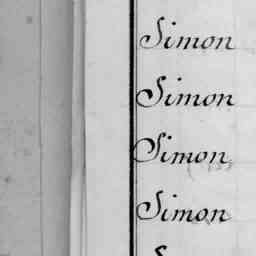 Simon
Simon
Simon
Simon